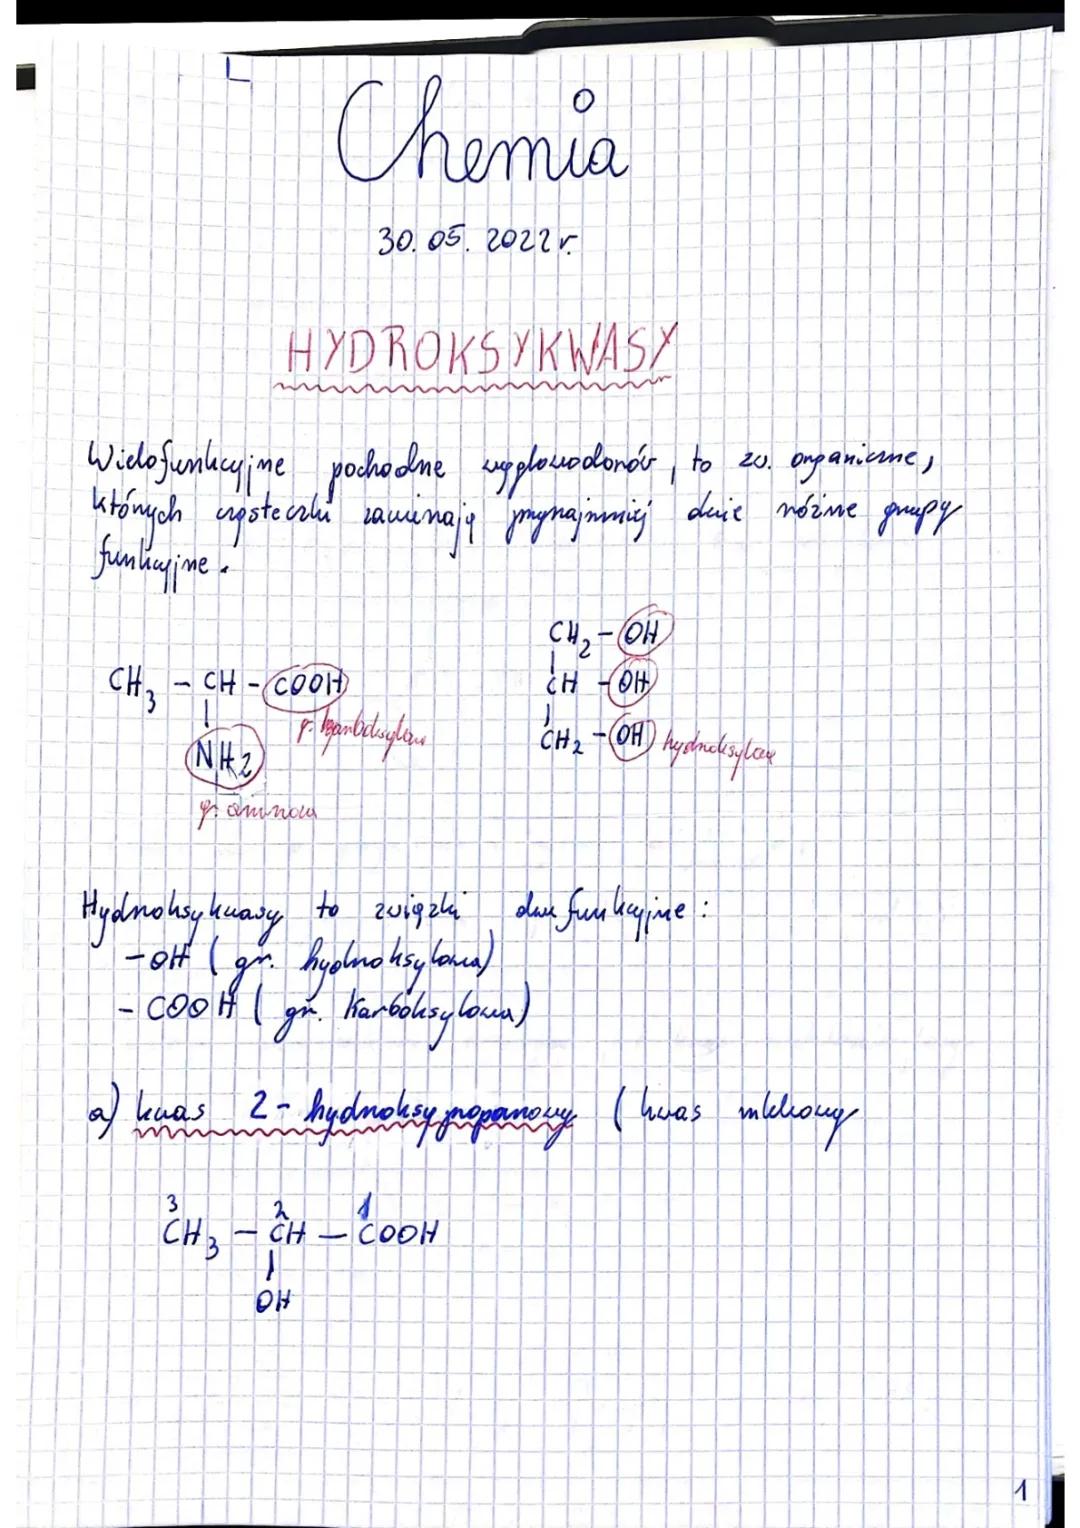 Chemia
30.05.2022 r.
HYDROKSYKWASY
Wielofunkcyjne pochodne węglowodorów, to zw. organiczne,
których cząsteczki zawierają przynajmniej dwie różne grupy
funkcyjne.
CH₂ - OH
CH - OH
CH₂ - OH hydroksylowa
CH₃ - CH - COOH
gr. karboksylowa
NH₂
gr. aminowa
Hydroksykwasy to związki dwufunkcyjne:
- OH (gr. hydroksylowa)
- COOH (gr. karboksylowa)
a) kwas 2-hydroksypropanowy (kwas mlekowy
3 2 1
CH₃ - CH - COOH
OH
1